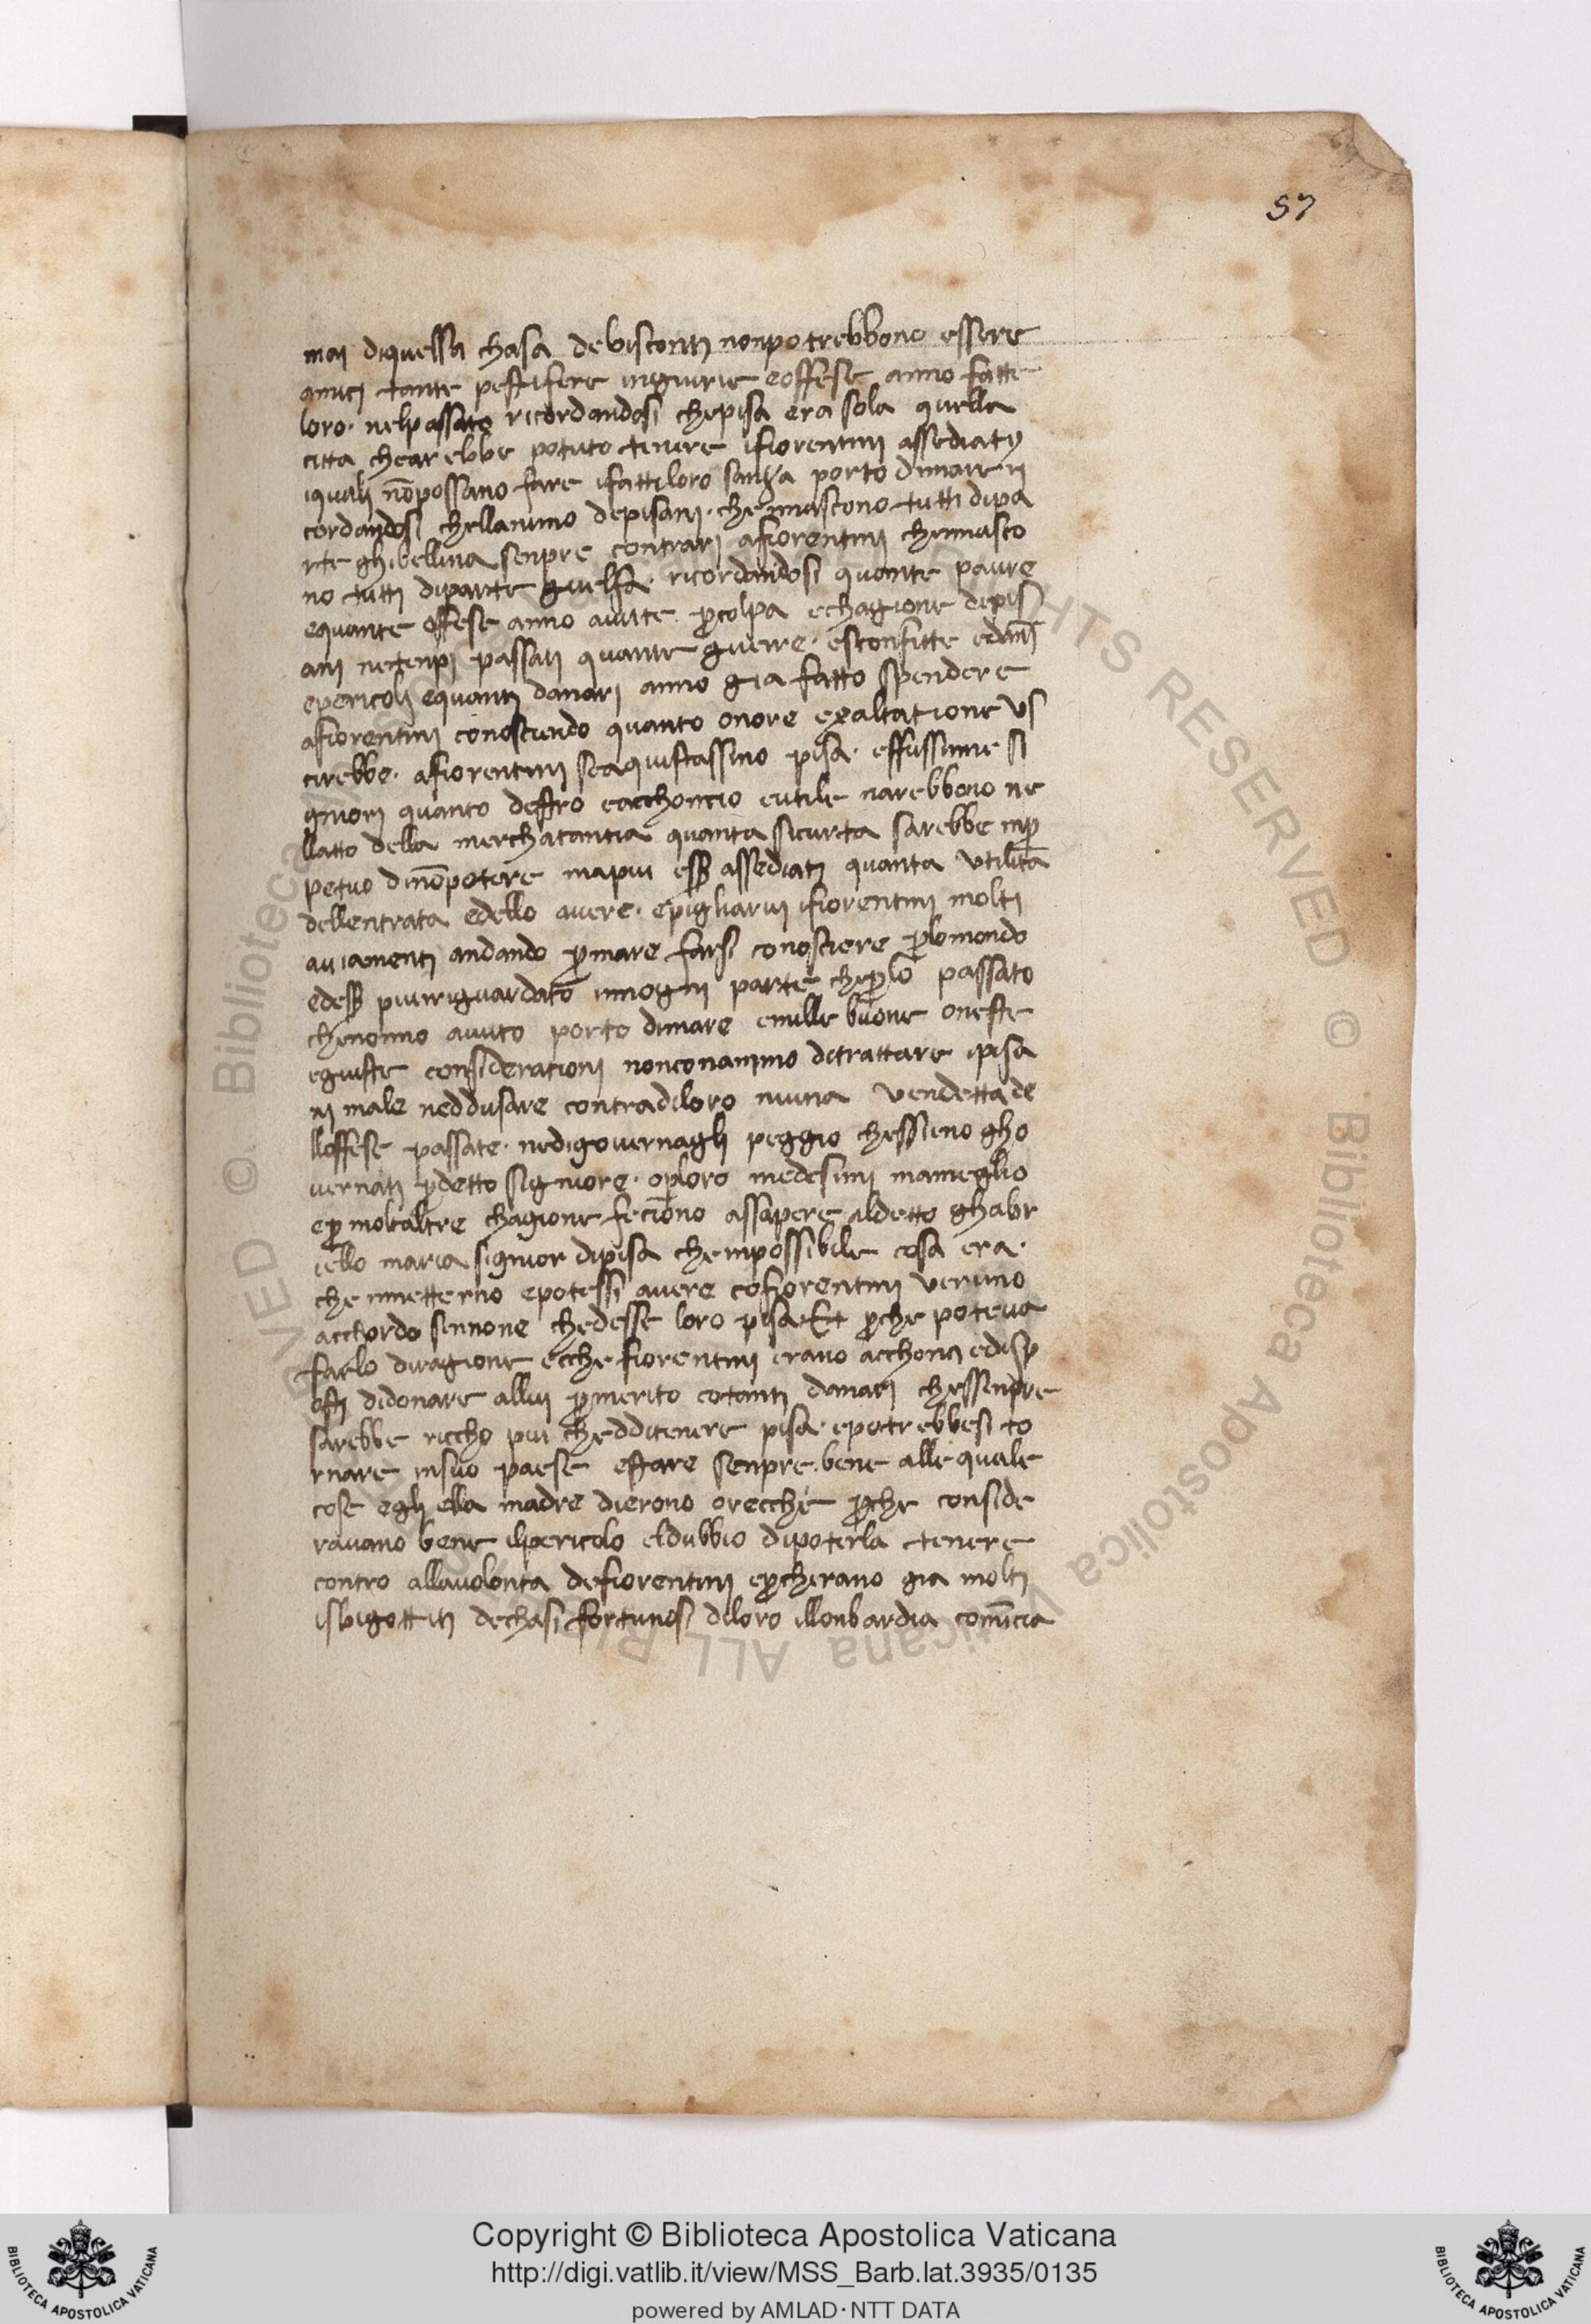 57
mai diquella chasa debisconti nonpotrebbono essere
amici tante pestifere ingiurie eoffese anno fatte
loro· nelpassato ricordandosi chepisa era sola quella
citta chearebbe potuto tenere ifiorentini assediati
iquali nōpossano fare ifattiloro sanza porto dimare ri
cordandosi chellanimo depisani· chennascono tutti dipa
rte ghibellina senpre contrari afiorentini chennasco
no tutti diparte guelfa· ricordandosi quante paure
equante offese anno avute pcolpa echagione depis
ani netenpi passati quante guerre· esconfitte edanī
epericoli equanti danari anno gia fatto spendere
afiorentini conosciendo quanto onore exaltatione us
cirebbe· afiorentini seaquistassino pisa· effussinne si
gniori quanto destro eacchoncio eutile narebbono ne
llatto della merchatantia quanta sicurta sarebbe inp
petuo dinōpotere mapiu essere assediati quanta utilita
dellentrata edello avere· epigliarvi ifiorentini molti
aviamenti andando pmare farsi conosciere plomondo
edess piuriguardatō innogni parte cheplo passato
chenonno avuto porto dimare emille buone oneste
egiuste considerationi nonconanimo ditrattare ipisa
ni male neddusare contradiloro niuna vendetta de
lloffese passate· nedigovernagli peggio chessieno gho
vernati pdetto signiore· oploro medesimi mameglio
ep moltaltre chagione feciono assapere aldetto ghabr
iello maria signior dipisa chenpossibile cosa era·
che mmetterno epotessi avere cofiorentini veruno
acchordo sennone chedesse loro pisa Et pche poteva
farlo diragione ecche fiorentini erano acchonci edisp
osti didonare allui pmerito cotanti danari chessenpre
sarebbe riccho piu chedditenere pisa· epotrebbesi to
rnare insuo paese estare senpre bene alle quale
cose egli ella madre dierono orecchie pche conside
ravano bene ilpericolo eldubbio dipoterla tenere
contro allavolonta defiorentini epcherano gia molti
isbigottiti dechasi fortunosi diloro illonbardia comīcia
© Biblioteca Apostolica Vaticana ALL RIGHTS RESERVED
Copyright © Biblioteca Apostolica Vaticana
http://digi.vatlib.it/view/MSS_Barb.lat.3935/0135
powered by AMLAD·NTT DATA
BIBLIOTECA APOSTOLICA VATICANA
BIBLIOTECA APOSTOLICA VATICANA